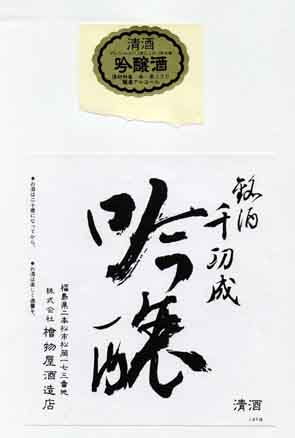 清酒
吟醸酒
醸造アルコール
銘酒
千功成
吟醸
福島県二本松市松岡一七三番地
株式会社 檜物屋酒造店
●お酒は二十歳になってから。
●お酒は楽しく適量を。
清酒